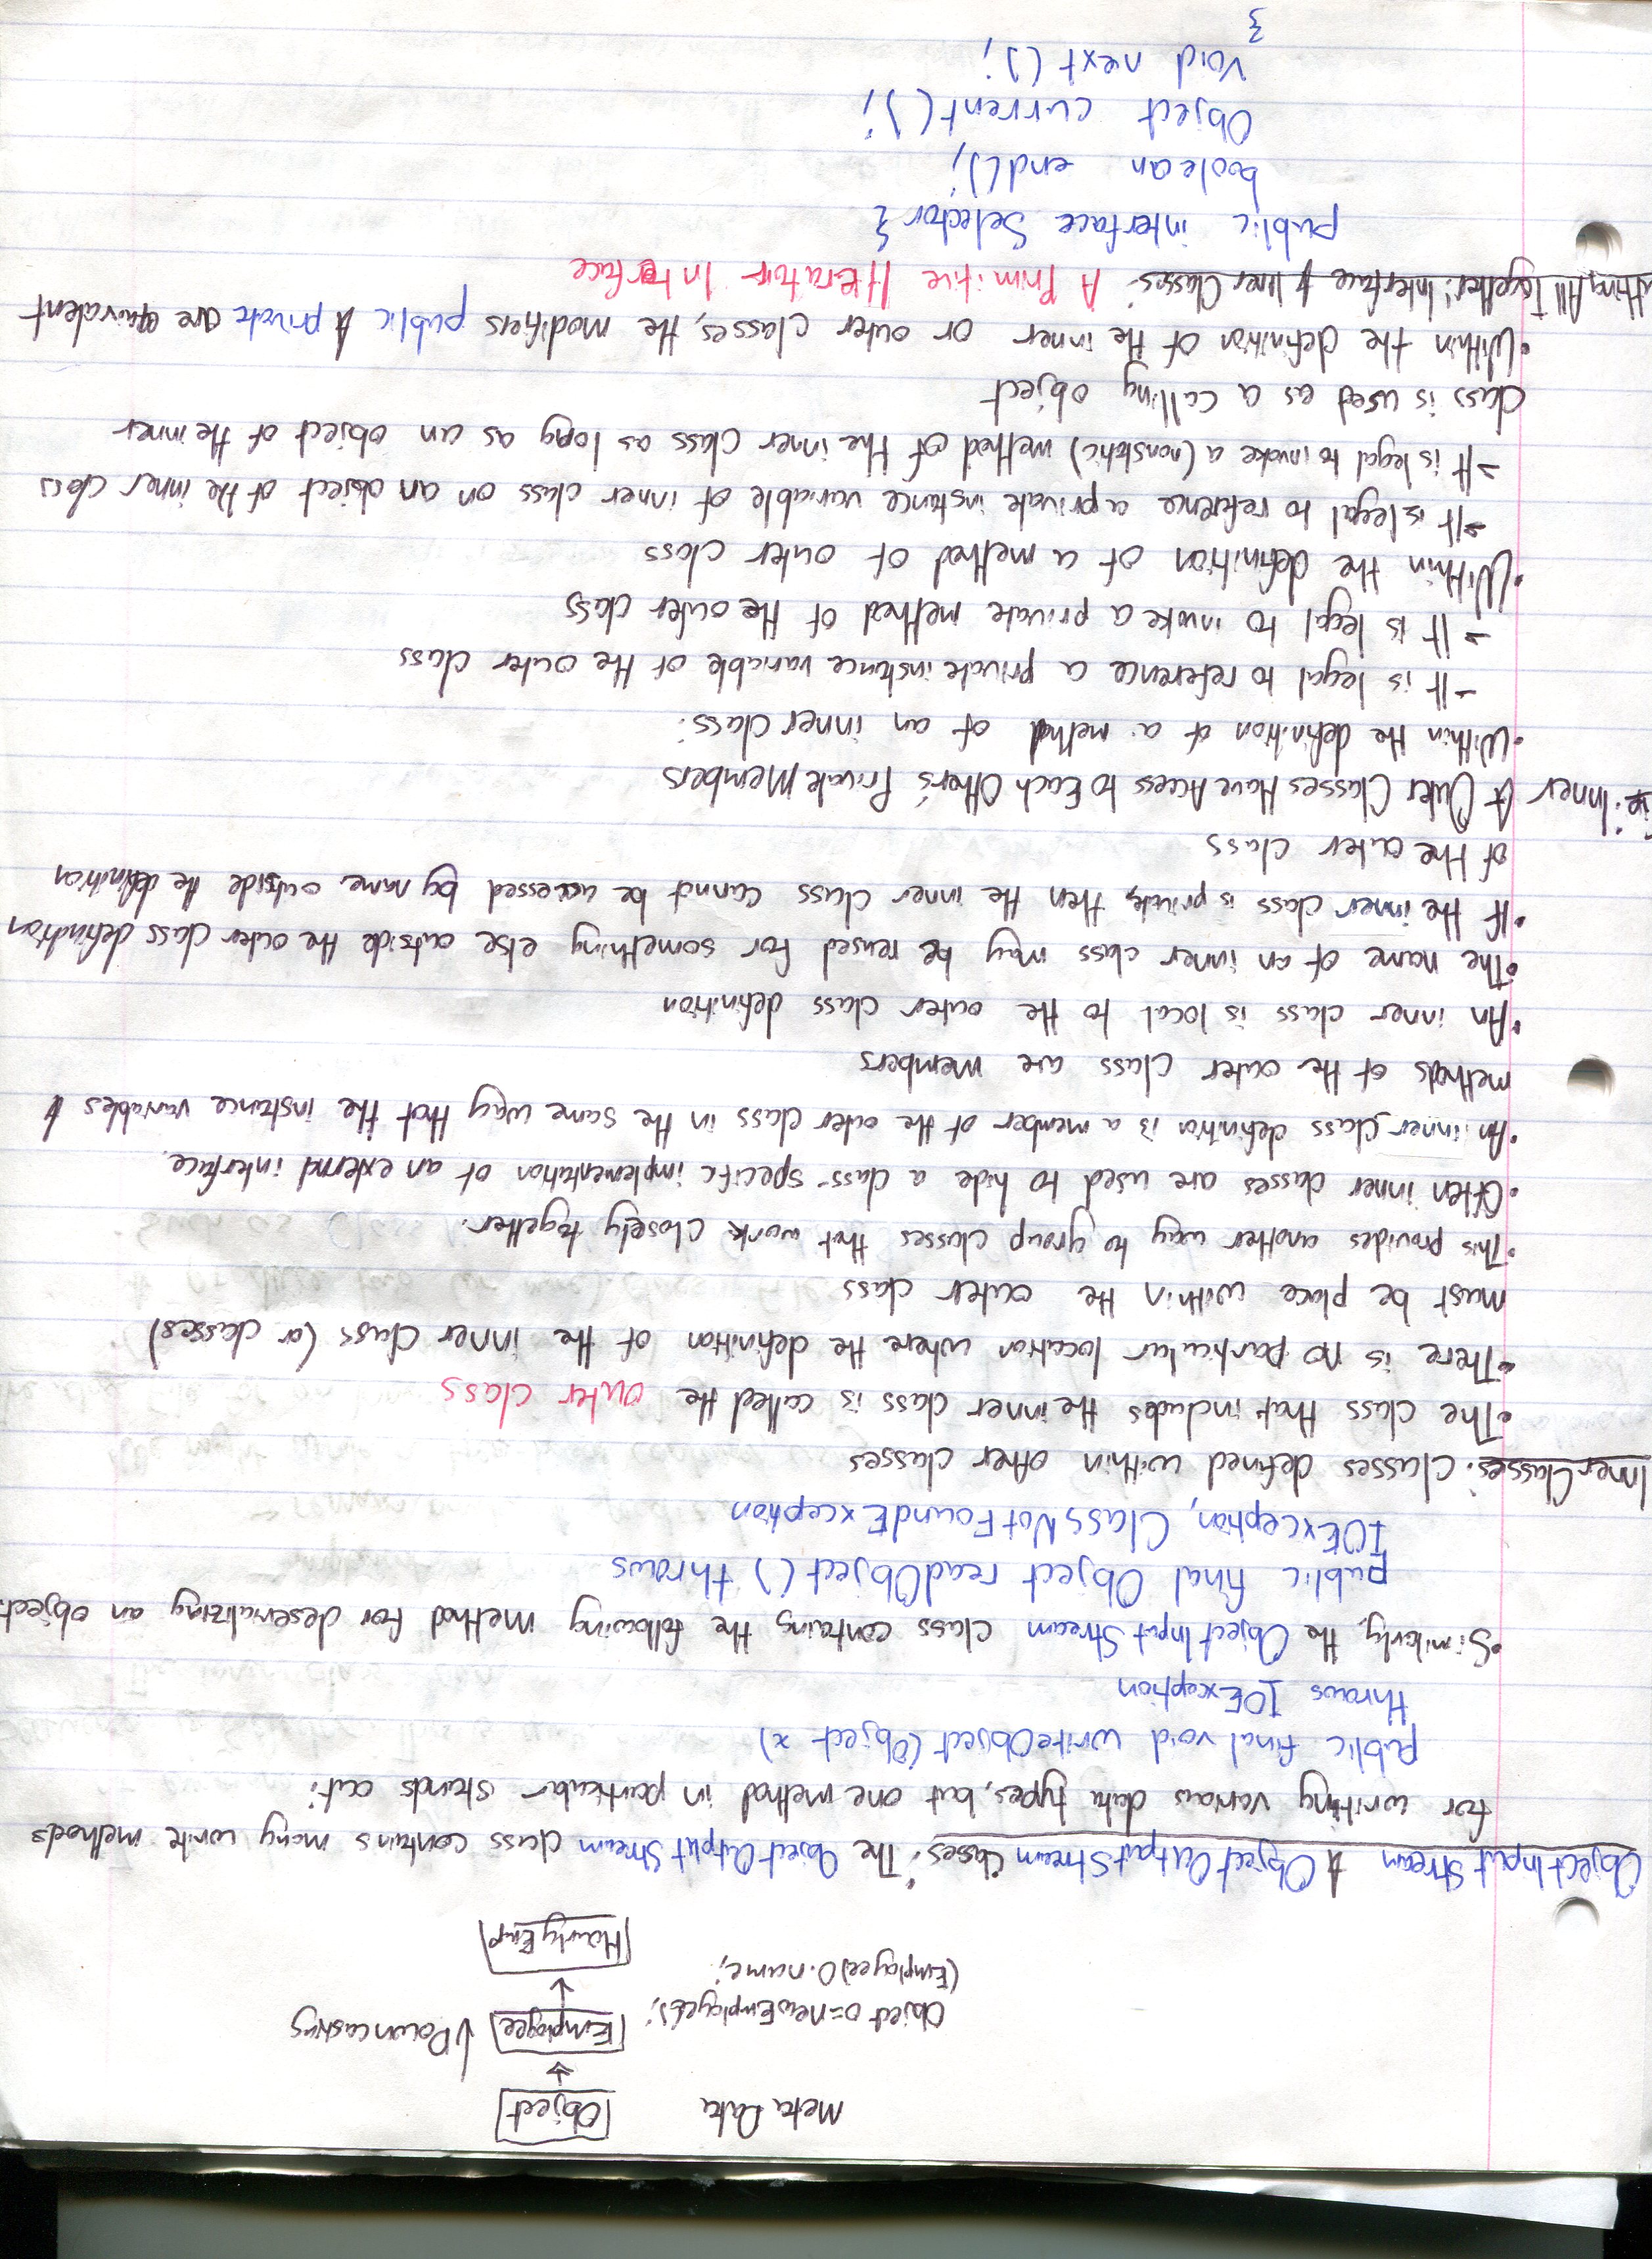 Meta Data
Object
Employee
↓Downcasting
Object o=new Employee();
(Employee)O.name;
HourlyEmp
ObjectInputStream & ObjectOutputStream Classes: The ObjectOutputStream class contains many write methods
for writing various data types, but one method in particular stands out:
public final void writeObject(Object x)
throws IOException
•Similarly, the ObjectInputStream class contains the following method for deserializing an object:
public final Object readObject() throws
IOException, ClassNotFoundException
Inner Classes: Classes defined within other classes
•The class that includes the inner class is called the outer class
•There is no particular location where the definition of the inner class (or classes)
must be place within the outer class
•This provides another way to group classes that work closely together.
•Often inner classes are used to hide a class-specific implementation of an external interface.
•An inner class definition is a member of the outer class in the same way that the instance variables &
methods of the outer class are members
•An inner class is local to the outer class definition
•The name of an inner class may be reused for something else outside the outer class definition
•If the inner class is private, then the inner class cannot be accessed by name outside the definition
of the outer class
Inner & Outer Classes Have Access to Each Other's Private Members
•Within the definition of a method of an inner class:
→It is legal to reference a private instance variable of the outer class
→It is legal to invoke a private method of the outer class
•Within the definition of a method of outer class
→It is legal to reference a private instance variable of inner class on an object of the inner class
→It is legal to invoke a (nonstatic) method of the inner class as long as an object of the inner
class is used as a calling object
•Within the definition of the inner or outer classes, the modifiers public & private are equivalent
utting All Together: Interface & Inner Classes: A Primitive Iterator Interface
public interface Selector{
boolean end();
Object current();
Void next();
}